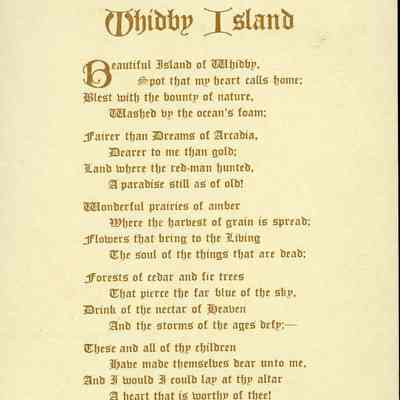 Whidby Island
Beautiful Island of Whidby,
Spot that my heart calls home;
Blest with the bounty of nature,
Washed by the ocean's foam;
Fairer than Dreams of Arcadia,
Dearer to me than gold;
Land where the red-man hunted,
A paradise still as of old!
Wonderful prairies of amber
Where the harvest of grain is spread;
Flowers that bring to the Living
The soul of the things that are dead;
Forests of cedar and fir trees
That pierce the far blue of the sky,
Drink of the nectar of Heaven
And the storms of the ages defy;—
These and all of thy children
Have made themselves dear unto me,
And I would I could lay at thy altar
A heart that is worthy of thee!